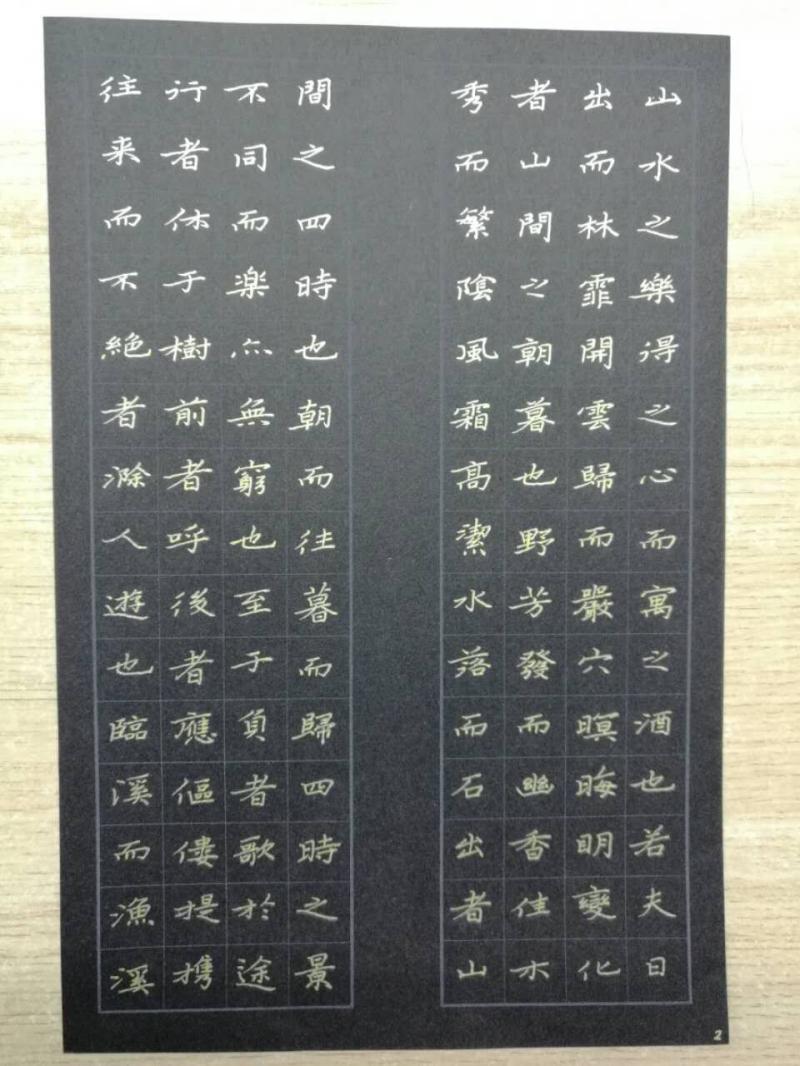 山水之樂得之心而寓之酒也若夫日
出而林霏開雲歸而巖穴暝晦明變化
者山間之朝暮也野芳發而幽香佳木
秀而繁陰風霜高潔水落而石出者山
間之四時也朝而往暮而歸四時之景
不同而楽亦無窮也至于負者歌於途
行者休于樹前者呼後者應傴僂提携
往来而不絶者滁人遊也臨溪而漁溪
2